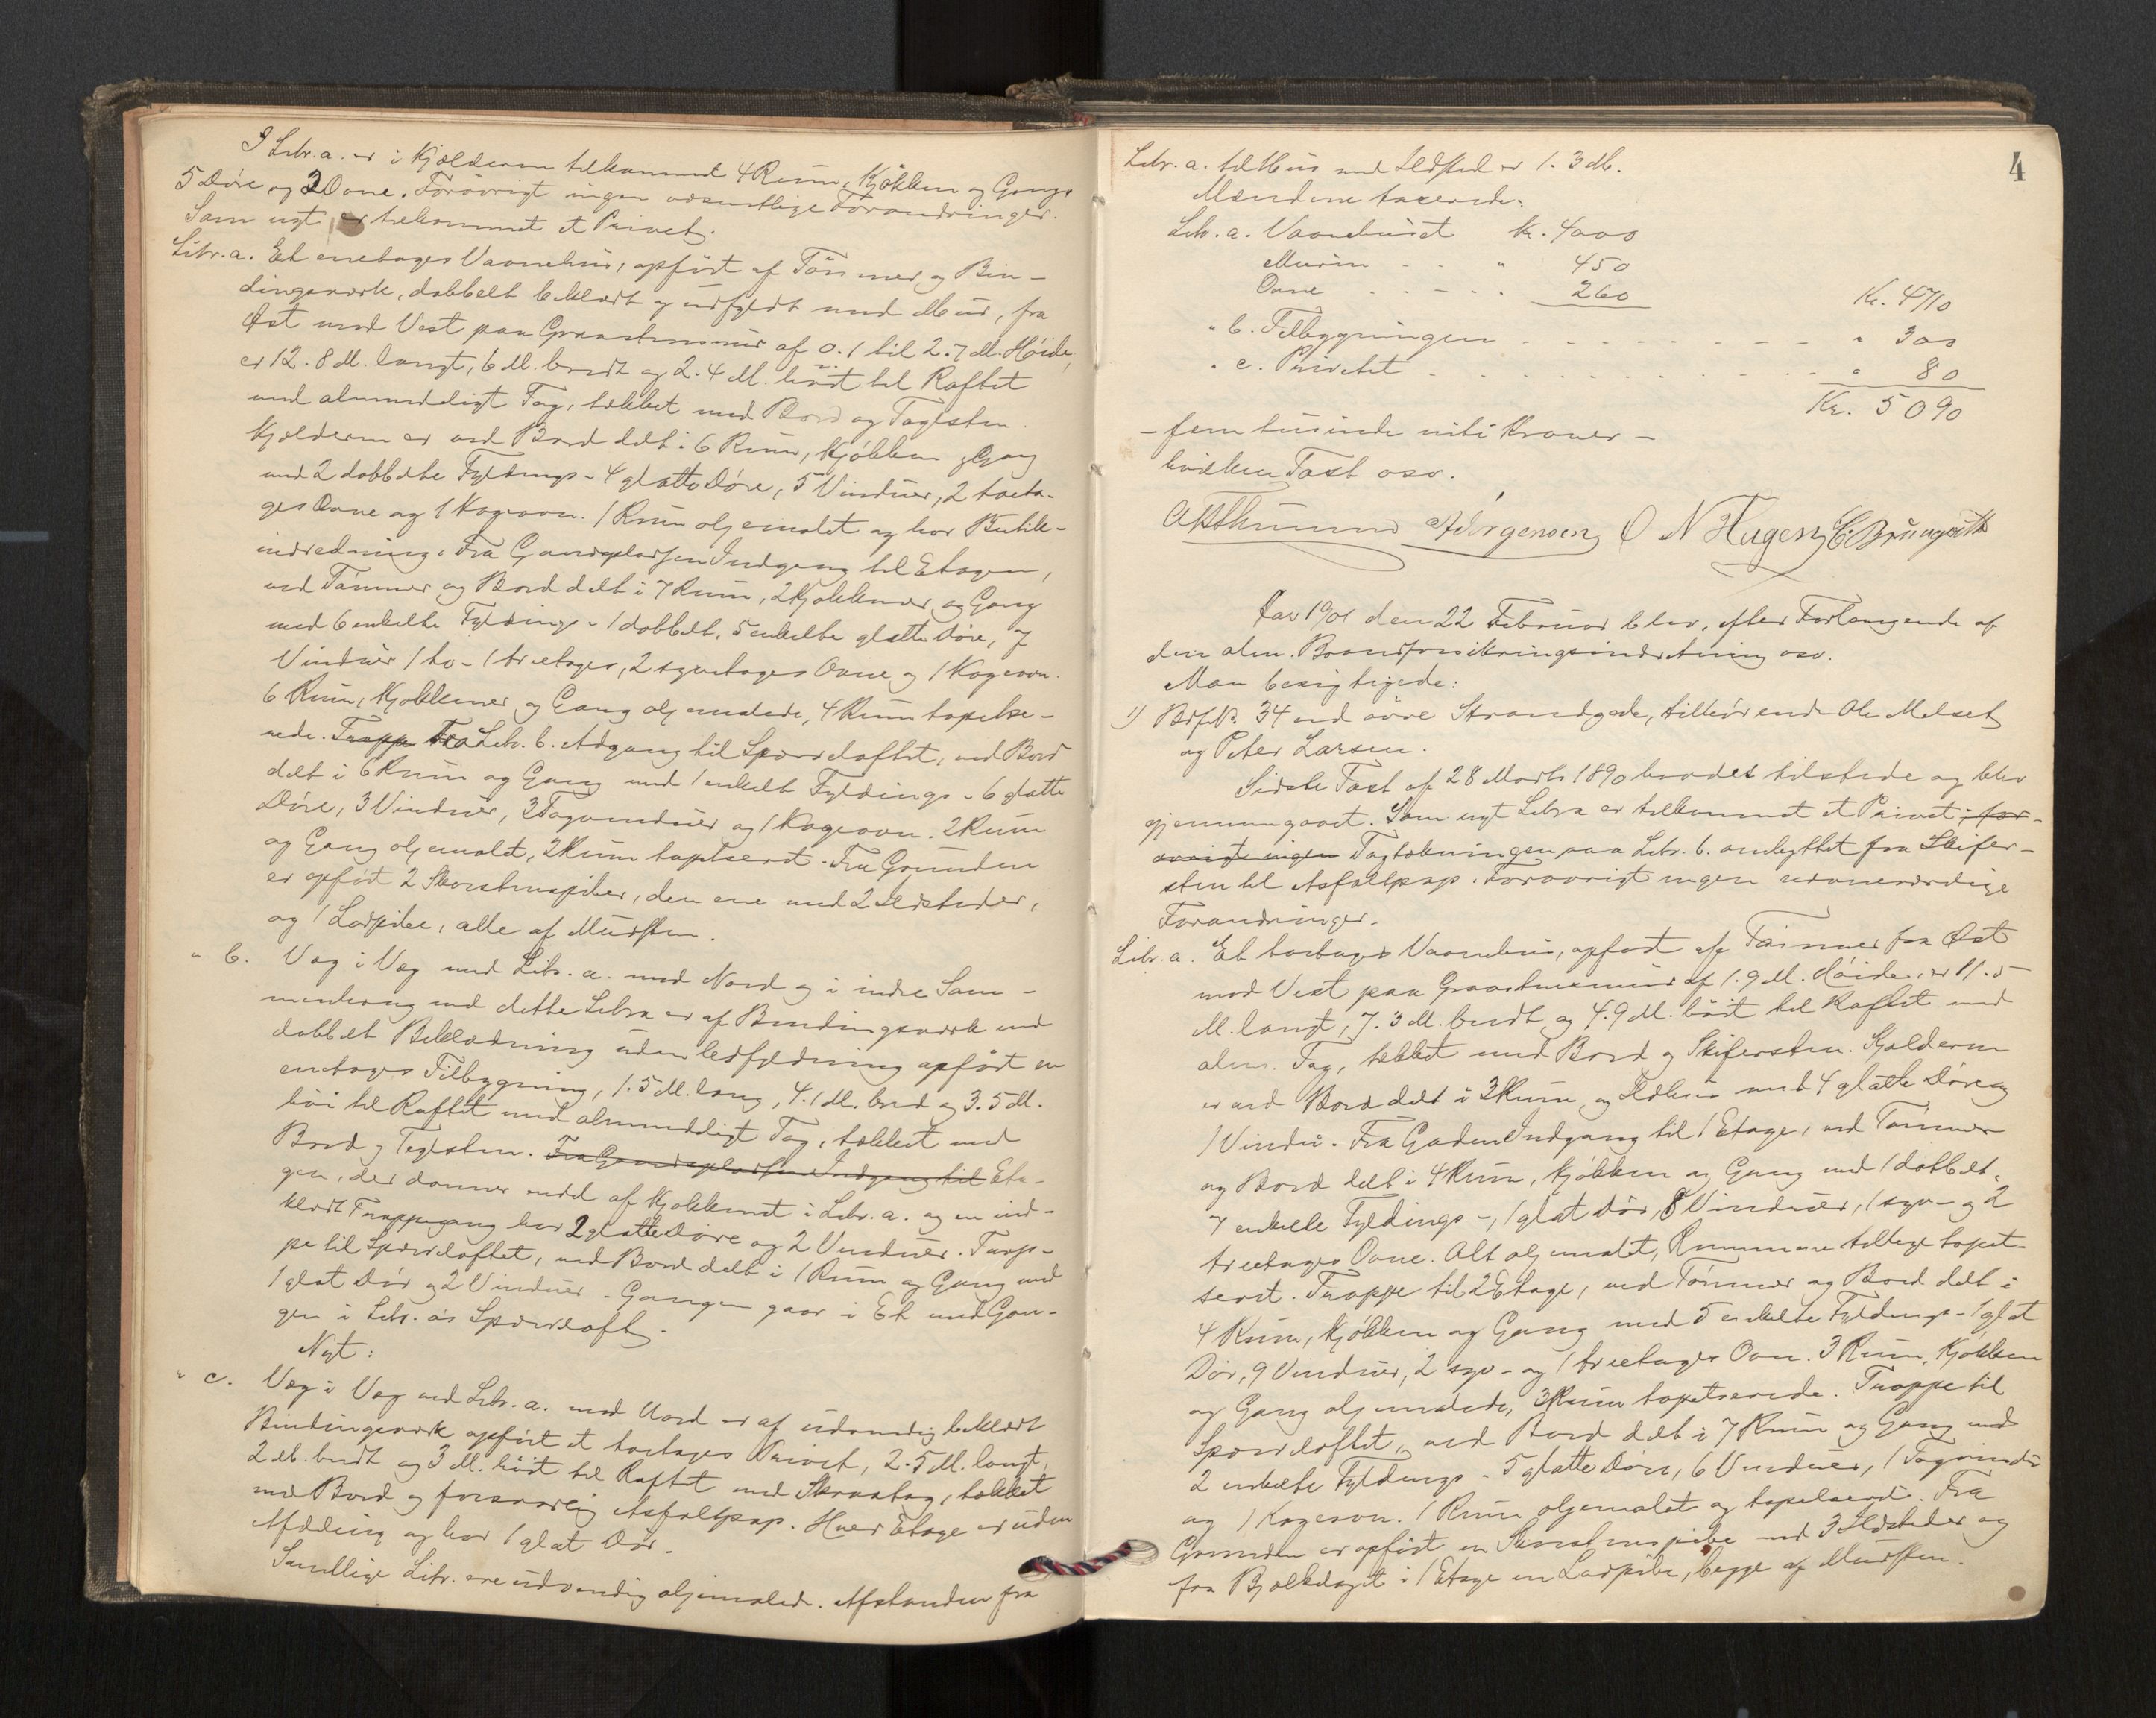 I Litr. a. er i Kjælderen tilkommet 4 Rum, Kjøkken og Gang,
5 Døre og 3 Ovne. Forøvrigt ingen væsentlige Forandringer.
Som nyt er tilkommet et Privet.
Litr. a. Et enetages Vaanehus, opført af Tømmer og Bin-
dingsværk, dobbelt beklædt og udfyldt med Mur, fra
Øst mod Vest paa Graastensmur af 0.1 til 2.7 M. Høide,
er 12.8 M. langt, 6 M. bredt og 2.4 M. høit til Raftet
med almindeligt Tag, tækket med Bord og Taglsten.
Kjælderen er ved Bord delt i 6 Rum, Kjøkken og Gang
med 2 dobbelte Fyldings- 4 glatte Døre, 5 Vinduer, 2 toeta-
ges Ovne og 1 Kogeovn. 1 Rum oljemalet og har Butik-
indredning. Fra Gaardspladsen Indgang til Etagen,
ved Tømmer og Bord delt i 7 Rum, 2 Kjøkkener og Gang
med 6 enkelte Fyldings- 1 dobbelt, 5 enkelte glatte Døre, 7
Vinduer 1 to- 1 treetages, 2 syvetages Ovne og 1 Kogeovn.
6 Rum, Kjøkkener og Gang oljemalede, 4 Rum tapetse-
rede. Trappe Fra Litr. b. Adgang til Sperreloftet, ved Bord
delt i 6 Rum og Gang med 1 enkelt Fyldings- 6 glatte
Døre, 3 Vinduer, 3 Tagvinduer og 1 Kogeovn. 2 Rum
og Gang oljemalet, 2 Rum tapetseret. Fra Grunden
er opført 2 Skorstenspiber, den ene med 2 Ildsteder,
og 1 Ladpibe, alle af Mursten.
" b. Væg i Væg med Litr. a. mod Nord og i indre Sam-
menhæng med dette Litra er af Bindingsværk med
dobbelt Beklædning uden Udfyldning opført en
enetages Tilbygning, 1.5 M. lang, 4.1 M. bred og 3.5 M.
høi til Raftet med almindeligt Tag, tækket med
Bord og Teglsten. Fra Gaardspladsen Indgang til Eta-
gen, der danner endel af Kjøkkenet i Litr. a. og en ind-
klædt Trappegang har 2 glatte Døre og 2 Vinduer. Trap-
pe til Sperreloftet, ved Bord delt i 1 Rum og Gang med
1 glat Dør og 2 Vinduer. Gangen gaar i Et med Gan-
gen i Litr. a's Sperreloft.
Nyt:
" c. Væg i Væg med Litr. a. mod Nord er af udvendig beklædt
Bindingsværk opført et toetages Privet, 2.5 M. langt,
2 M. bredt og 3 M. høit til Raftet med Skraatag, tækket
med Bord og forsvarlig Asfaltpap. Hver Etage er uden
Afdeling og har 1 glat Dør.
Samtlige Litr. ere udvendig oljemalede. Afstanden fra
4
Litr. a. til Hus med Ildsted er 1.3 M.
Mændene taxerede:
Litr. a. Vaanehuset Kr. 4000
Muren " 450
Ovne 260 Kr. 4710
" b. Tilbygningen " 300
" c. Privetet " 80
Kr. 5090
- fem tusinde niti Kroner -
hvilken Taxt osv.
Jørgensen O N Hagen
Aar 1901 den 22 Februar blev, efter Forlangende af
den alm. Brandforsikringsindretning osv.
Man besigtigede:
1) Brf. No. 34 ved øvre Strandgade, tilhørende Ole Melset
og Peter Larsen.
Sidste Taxt af 28 Marts 1890 havdes tilstede og blev
gjennemgaaet. Som nyt Litra er tilkommet et Privet; for-
øvrigt ingen Tagtækningen paa Litr. b. ombyttet fra Skifer-
sten til Asfaltpap. Forøvrigt ingen nævneværdige
Forandringer.
Litr. a. Et toetages Vaanehus, opført af Tømmer fra Øst
mod Vest paa Graastensmur af 1.9 M. Høide, er 11.5
M. langt, 7.3 M. bredt og 4.9 M. høit til Raftet med
alm. Tag, tækket med Bord og Skifersten. Kjælderen
er ved Bord delt i 3 Rum og Ildhus med 4 glatte Døre og
1 Vindu. Fra Gaden Indgang til 1 Etage, ved Tømmer
og Bord delt i 4 Rum, Kjøkken og Gang med 1 dobbelt,
7 enkelte Fyldings-, 1 glat Dør, 8 Vinduer, 1 syv- og 2
treetages Ovne. Alt oljemalet, Rummene tillige tapet-
seret. Trappe til 2 Etage, ved Tømmer og Bord delt i
4 Rum, Kjøkken og Gang med 5 enkelte Fyldings- 1 glat
Dør, 9 Vinduer, 2 syv- og 1 treetages Ovn. 3 Rum, Kjøkken
og Gang oljemalede, 3 Rum tapetserede. Trappe til
Sperreloftet, ved Bord delt i 7 Rum og Gang med
2 enkelte Fyldings- 5 glatte Døre, 6 Vinduer, 1 Tagvindu
og 1 Kogeovn. 1 Rum oljemalet og tapetseret. Fra
Grunden er opført en Skorstenspibe med 3 Ildsteder og
fra Bjælkelaget i 1 Etage en Ladpibe, begge af Mursten.